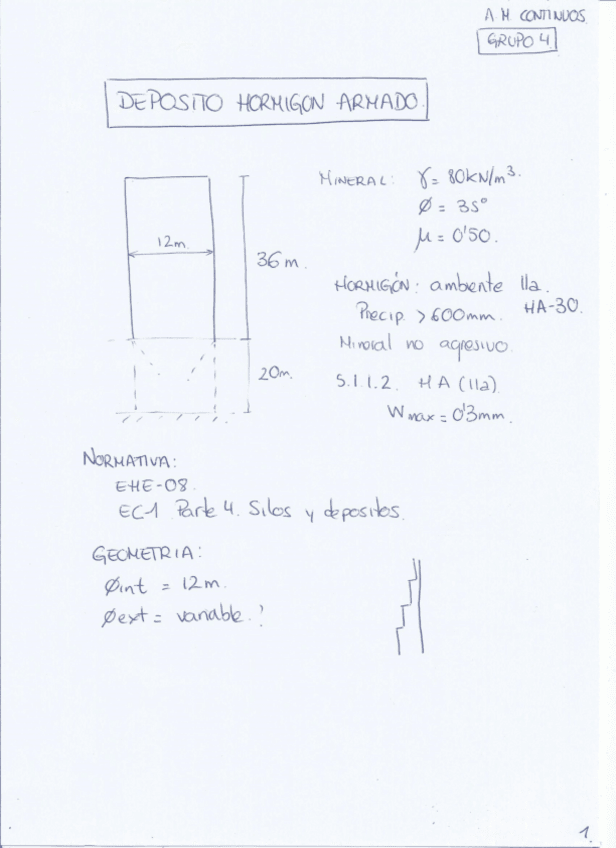 A.M. CONTINUOS.
GRUPO 4
DEPOSITO HORMIGON ARMADO.
12m.
36m.
20m.
MINERAL: γ = 80kN/m³.
Ø = 35°
μ = 0'50.
HORMIGÓN: ambiente IIa.
Precip. > 600mm. HA-30.
Mineral no agresivo.
5.1.1.2. HA (IIa)
Wmax = 0'3mm.
NORMATIVA:
EHE-08.
EC-1 Parte 4. Silos y depositos.
GEOMETRIA:
Øint = 12m.
Øext = variable.?
1.